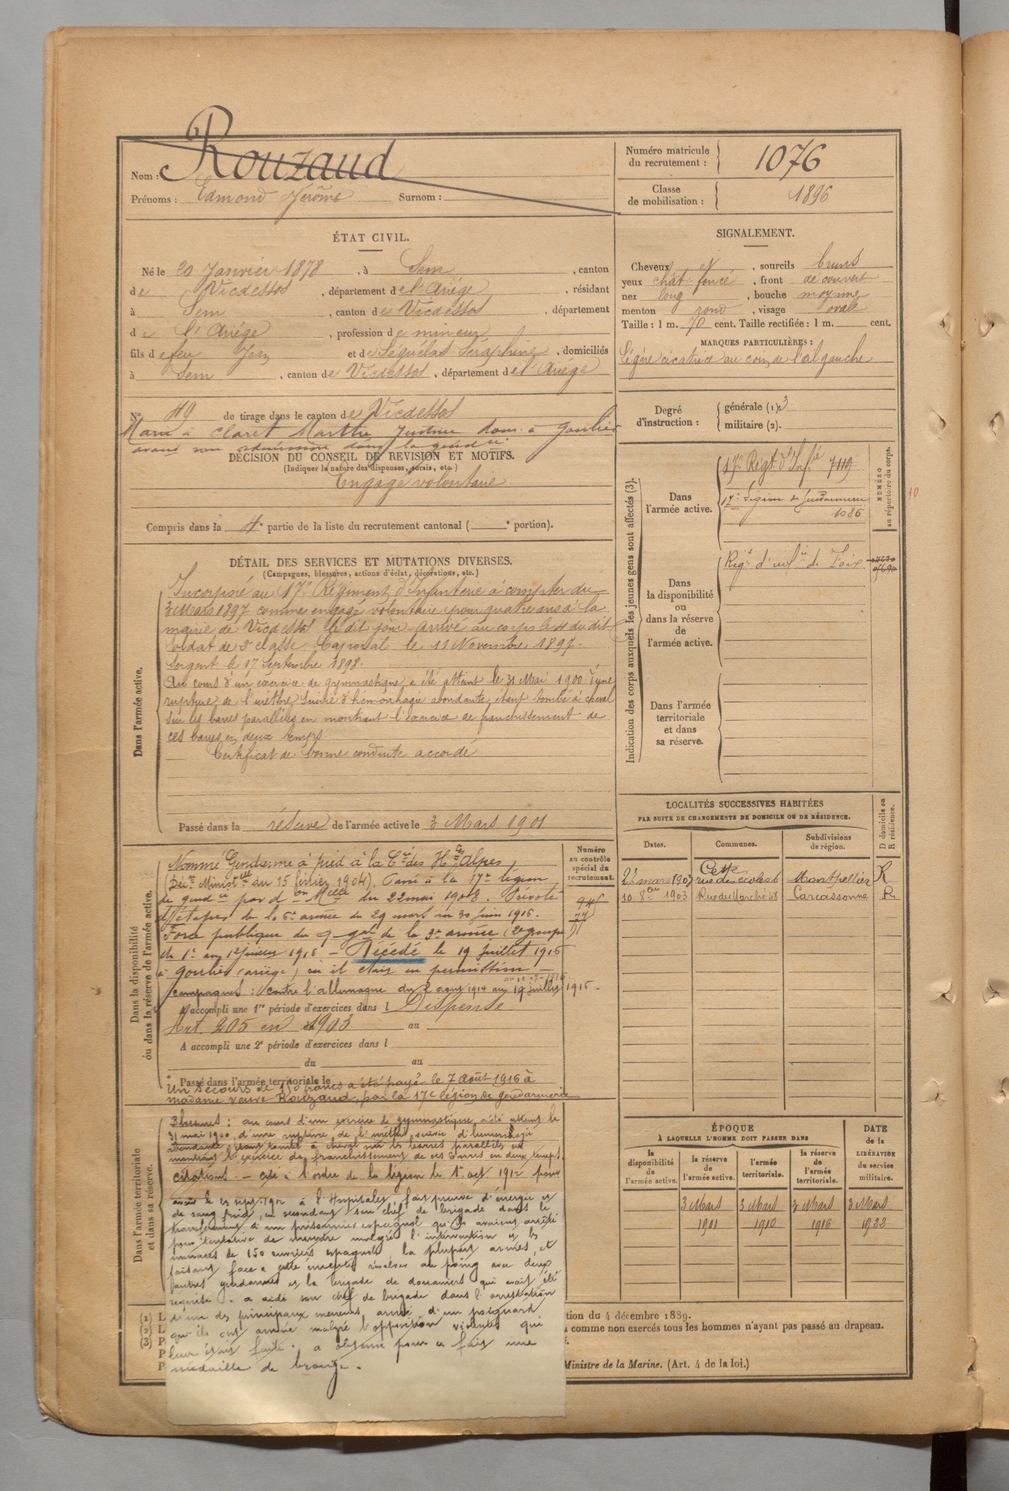 Nom : Rouzaud
Prénoms : Edmond Jérôme Surnom :
Numéro matricule du recrutement : 1076
Classe de mobilisation : 1896
ÉTAT CIVIL.
Né le 20 Janvier 1878, à Sem, canton
de Vicdessos, département de l'Ariège, résidant
à Sem, canton de Vicdessos, département
de l'Ariège, profession de mineur
fils de feu Jean et de Séquélas Séraphine, domiciliés
à Sem, canton de Vicdessos, département de l'Ariège
No 49 de tirage dans le canton de Vicdessos
Marié à Claret Marthe Justine dom. à Goulier
avant son admission dans la gend ie
DÉCISION DU CONSEIL DE REVISION ET MOTIFS.
(Indiquer la nature des dispenses, sursis, etc.)
Engagé volontaire
Compris dans la 4e partie de la liste du recrutement cantonal ( e portion).
SIGNALEMENT.
Cheveux et, sourcils bruns
yeux chât. foncé, front découvert
nez long, bouche moyenne
menton rond, visage ovale
Taille : 1 m. 70 cent. Taille rectifiée : 1 m. cent.
MARQUES PARTICULIÈRES :
légère cicatrice au coin de l'œil gauche
Degré d'instruction : générale (1) 3
militaire (2).
DÉTAIL DES SERVICES ET MUTATIONS DIVERSES.
(Campagnes, blessures, actions d'éclat, décorations, etc.)
Dans l'armée active.
Incorporé au 17e Régiment d'Infanterie à compter du
3 Mars 1897 comme engagé volontaire pour quatre ans à la
mairie de Vicdessos le dit jour arrivé au corps le dudit
soldat de 2e classe. Caporal le 11 Novembre 1897.
Sergent le 17 Septembre 1898.
Au cours d'un exercice de gymnastique a été atteint le 31 Mai 1900 d'une
rupture de l'urèthre suivie d'hémorrhagie abondante, étant tombé à cheval
sur les barres parallèles en montrant l'exercice de franchissement de
ces barres en deux temps
Certificat de bonne conduite accordé
Passé dans la réserve de l'armée active le 3 Mars 1901
Indication des corps auxquels les jeunes gens sont affectés (3).
NUMÉRO au répertoire du corps.
Dans l'armée active.
17e Régt d'Infie 7119
17e Légion de Gendarmerie
1086
10
Dans la disponibilité ou dans la réserve de l'armée active.
Régt d'infie de Foix
Dans l'armée territoriale et dans sa réserve.
LOCALITÉS SUCCESSIVES HABITÉES
PAR SUITE DE CHANGEMENTS DE DOMICILE OU DE RÉSIDENCE.
Dates. Communes. Subdivisions de région. D domicile ou R résidence.
22 mars 1903 Cette rue des écoles 6 Montpellier R
10 8bre 1903 Rue du Marché 48 Carcassonne R
Dans la disponibilité ou dans la réserve de l'armée active.
Numéro au contrôle spécial du recrutement.
Nommé Gendarme à pied à la Cie des Htes Alpes,
(Déc. Ministlle du 15 février 1904). Passé à la 17e légion
de gendie par don Mlle du 22 mai 1908. Prévôté
d'Etapes de la 6e armée du 29 mars au 30 juin 1915.
Force publique du q. gal de la 3e armée (2e groupe)
du 1er au 1916 - Décédé le 19 Juillet 1916
à Goulier (ariège) où il était en permission -
campagnes : contre l'allemagne du 2 août 1914 au 19 juillet 1916.
A accompli une 1re période d'exercices dans l Dispensé
Art. 205 en 1903 au
A accompli une 2e période d'exercices dans l
du au
Passé dans l'armée territoriale le
Un secours de 150 francs a été payé le 7 Août 1916 à
madame veuve Rouzaud, par la 17e légion de gendarmerie
Dans l'armée territoriale et dans sa réserve.
Blessures : au cours d'un exercice de gymnastique, a été atteint le
31 mai 1900, d'une rupture de l'urèthre, suivie d'hémorragie
abondante, étant tombé à cheval sur les barres parallèles en
montrant l'exercice de franchissement de ces barres en deux temps.
citations - cité à l'ordre de la légion le 1er oct 1912 pour
avoir le 1912 à l'Hospitalet, fait preuve d'énergie et
de sang froid, en secondant son chef de brigade dans le
transfèrement d'un prisonnier espagnol qu'ils avaient arrêté
pour tentative de meurtre malgré l'intervention et les
menaces de 150 ouvriers espagnols, la plupart armés, et
faisant face à cette émeute revolver au poing avec deux
autres gendarmes et la brigade de douaniers qui avait été
requise. a aidé son chef de brigade dans l'arrestation
d'un des principaux meneurs, armé d'un poignard
qu'ils ont amené malgré l'opposition violente qui
leur était faite. a obtenu pour ce fait une
médaille de bronze.
ÉPOQUE
À LAQUELLE L'HOMME DOIT PASSER DANS
DATE de la LIBÉRATION du service militaire.
la disponibilité de l'armée active.
la réserve de l'armée active.
l'armée territoriale.
la réserve de l'armée territoriale.
3 Mars 1901
3 Mars 1910
3 Mars 1916
3 Mars 1922
(1) L
(2) L
(3) P
P
P
tion du 4 décembre 1889.
comme non exercés tous les hommes n'ayant pas passé au drapeau.
Ministre de la Marine. (Art. 4 de la loi.)